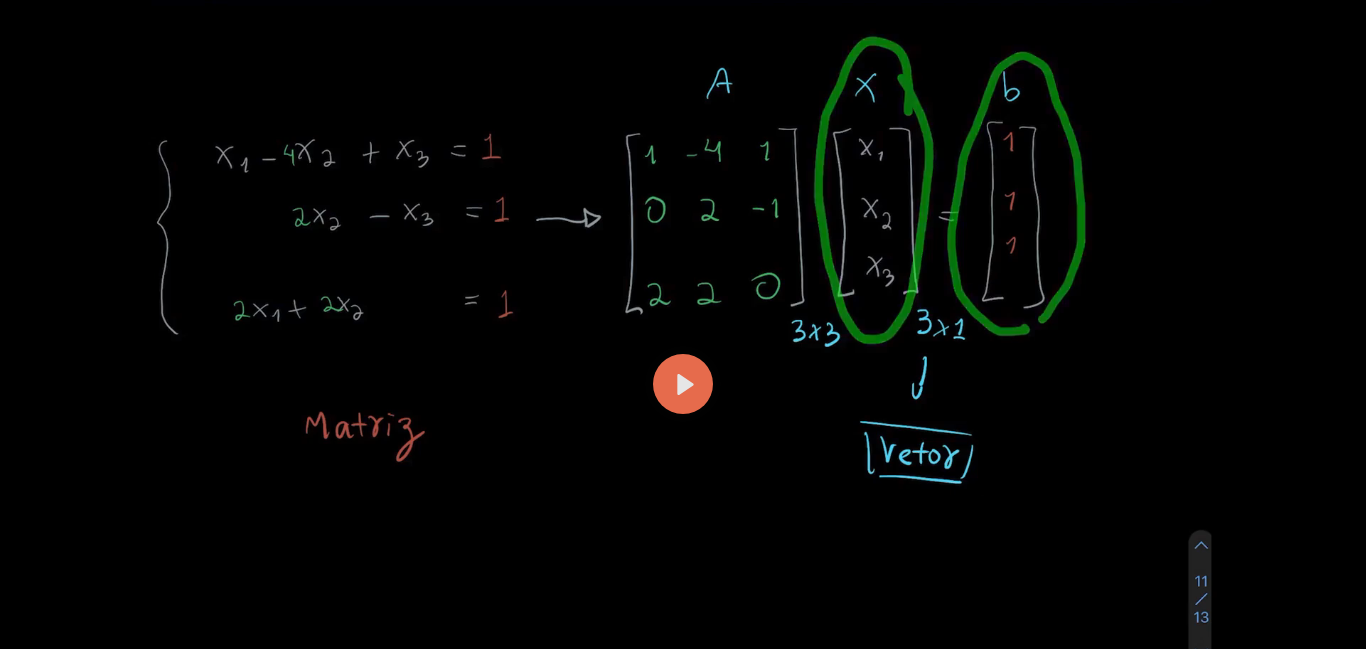 A X b
x₁ - 4x₂ + x₃ = 1
2x₂ - x₃ = 1
2x₁ + 2x₂ = 1
1 -4 1
0 2 -1
2 2 0
x₁
x₂
x₃
=
1
1
1
3x3
3x1
Matriz
Vetor
11
/
13